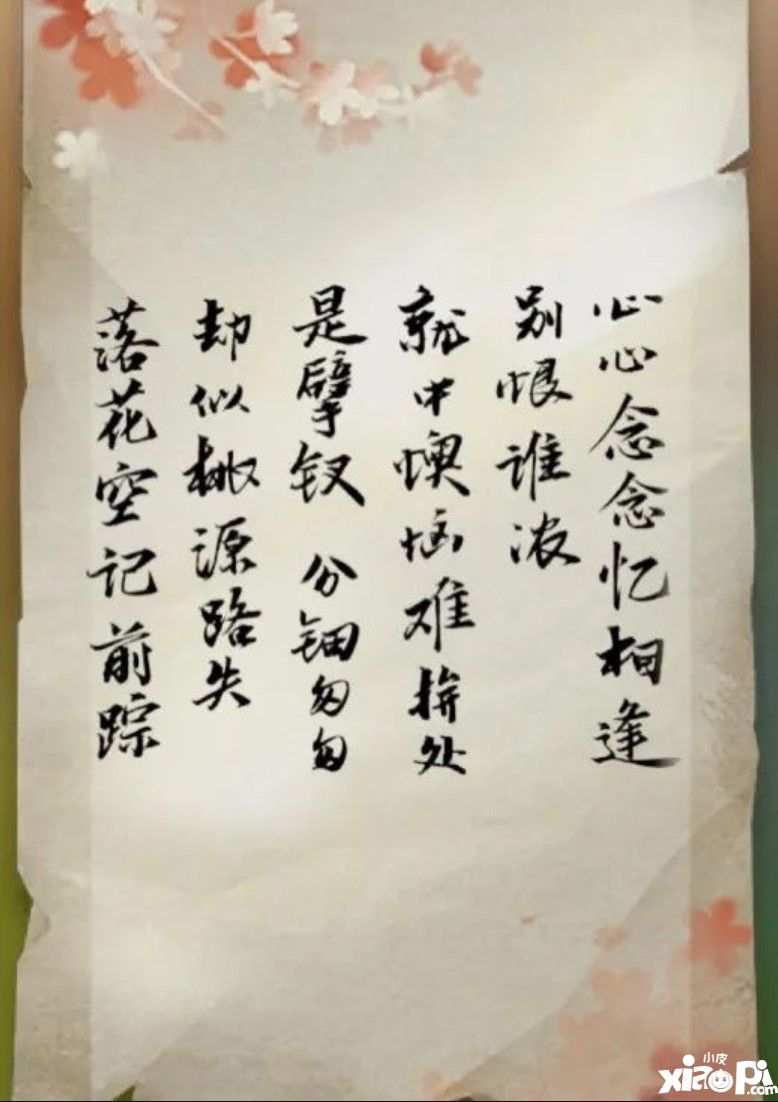 心心念念忆相逢
别恨谁浓
就中懊恼难拚处
是擘钗 分钿匆匆
却似桃源路失
落花空记前踪
小皮
xiaopi.com